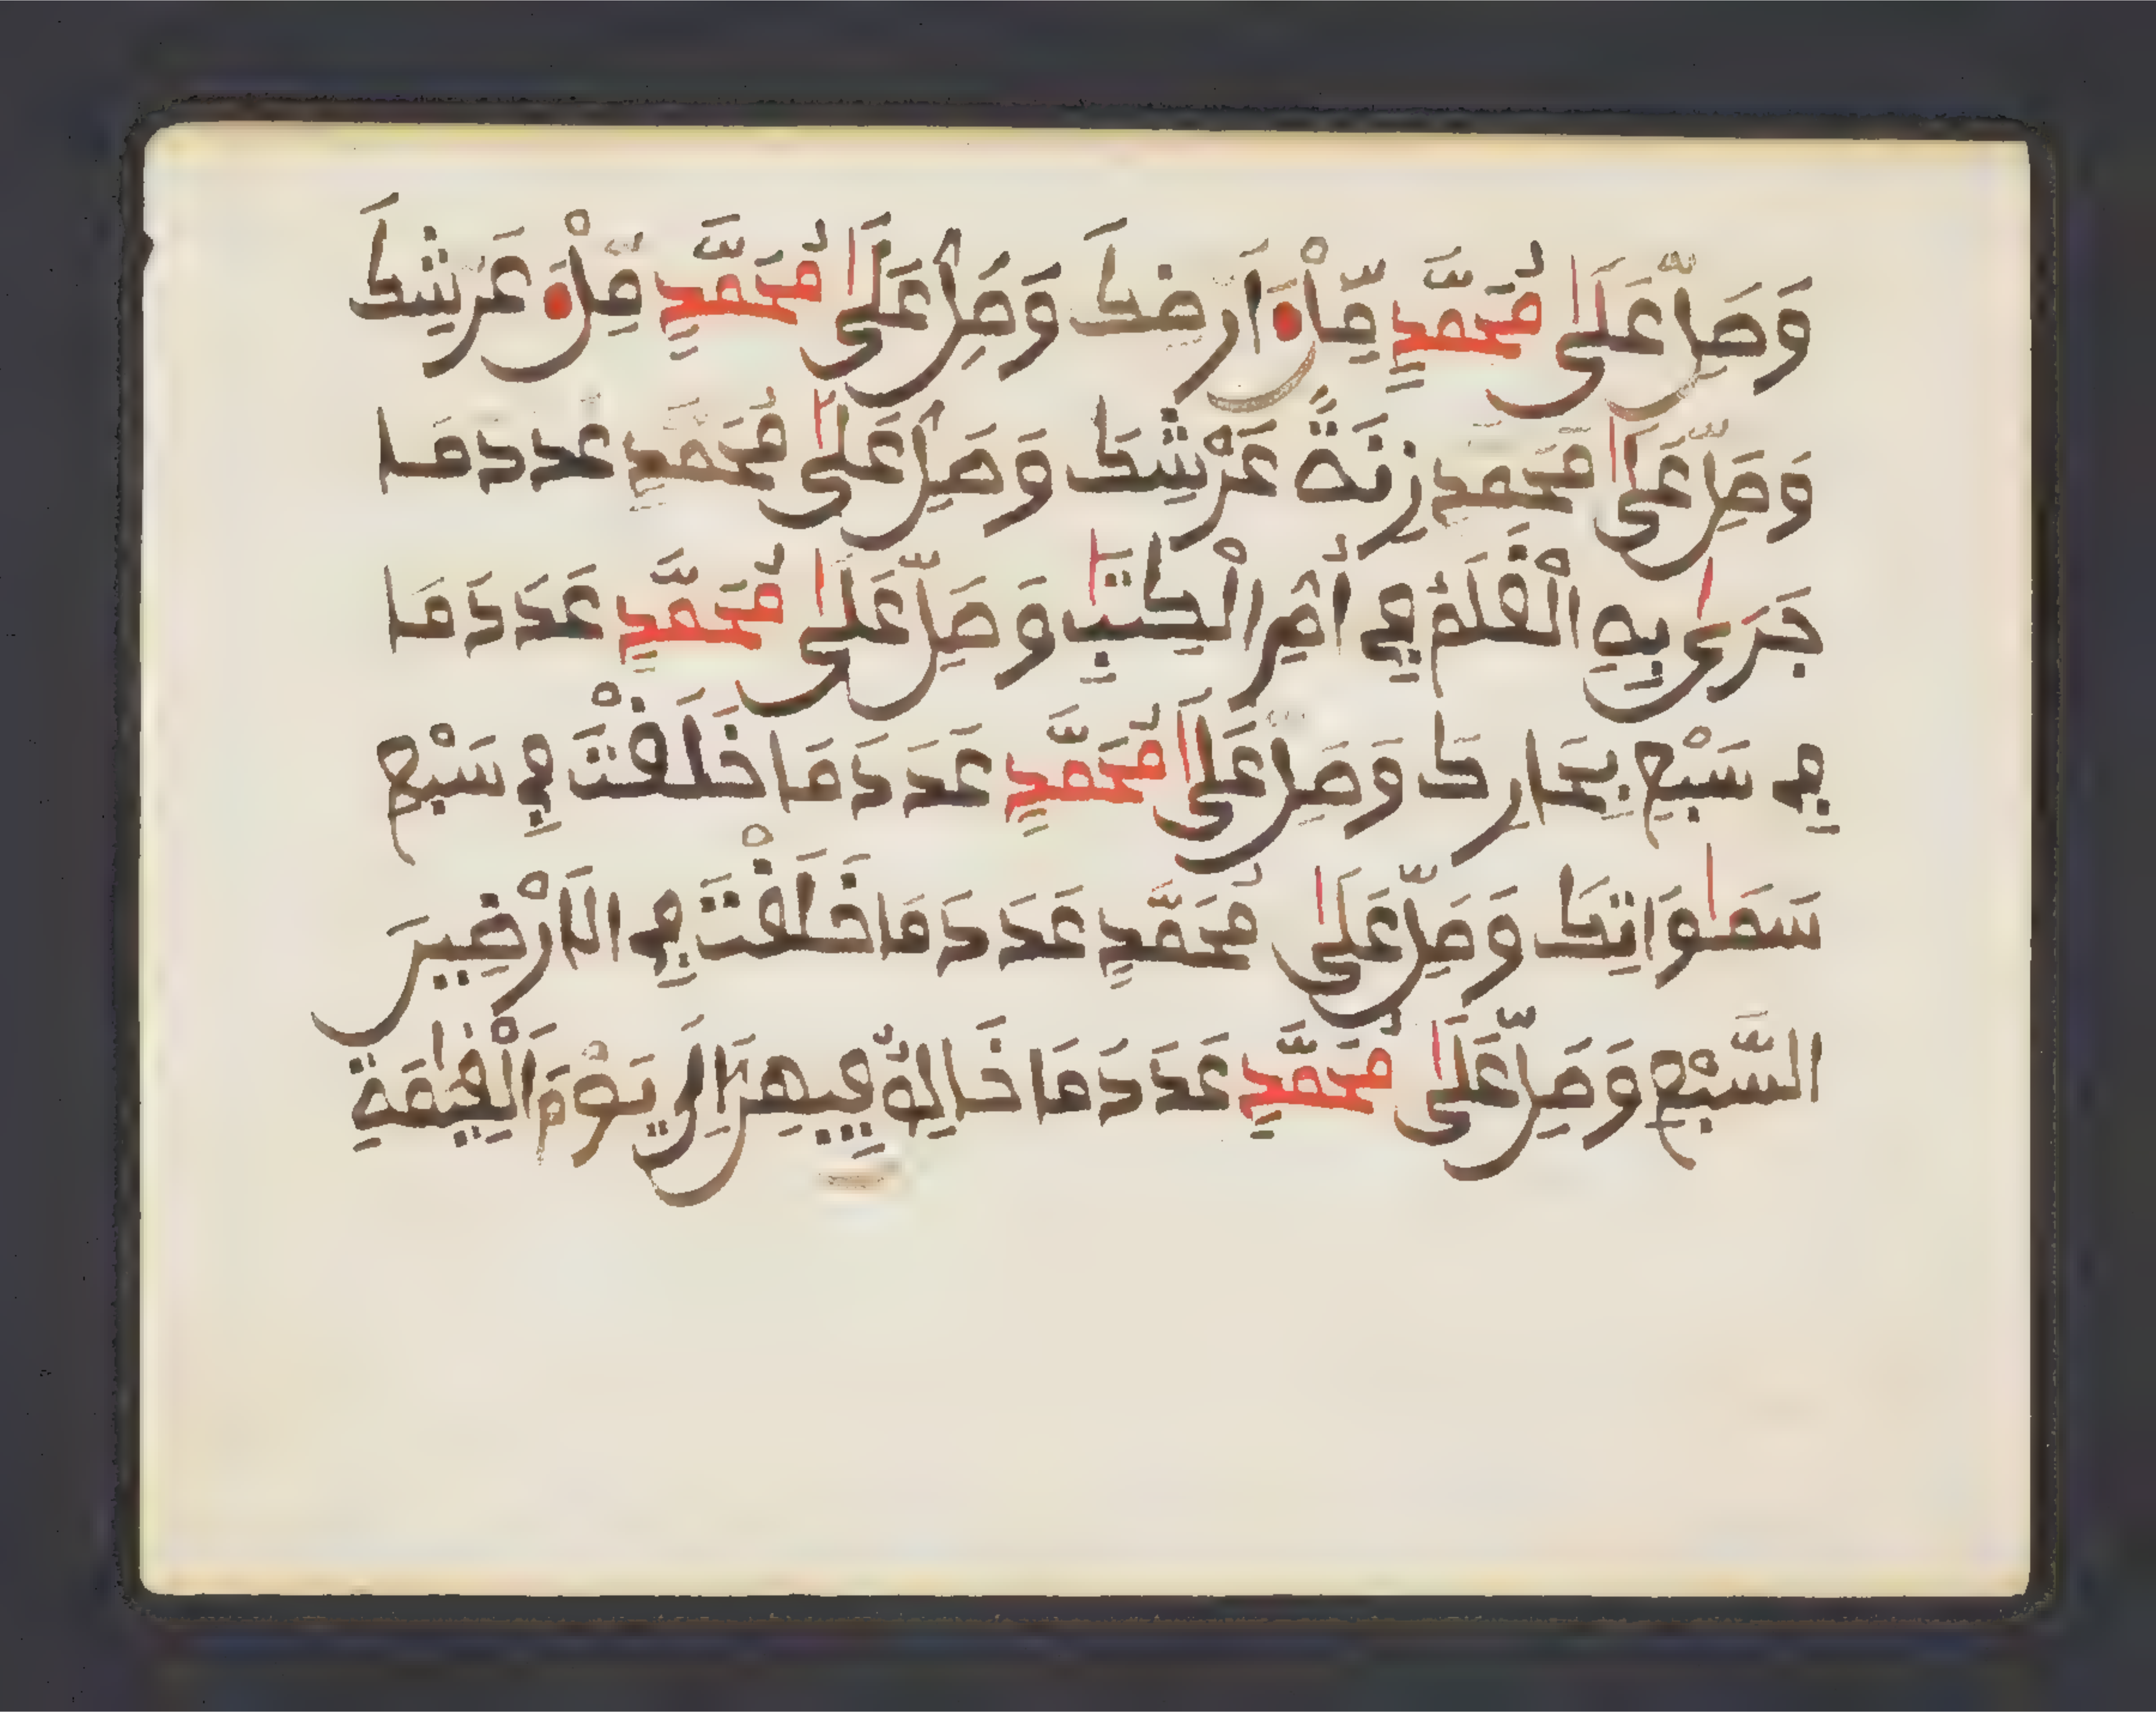 وَصَلِّ عَلَىٰ مُحَمَّدٍ مِّلْءَ اَرضِكَ وَصَلِّ عَلَىٰ مُحَمَّدٍ مِّلْءَ عَرْشِكَ
وَصَلِّ عَلَىٰ مُحَمَّدٍ زِنَةَ عَرْشِكَ وَصَلِّ عَلَىٰ مُحَمَّدٍ عَدَدَ مَا
جَرَىٰ بِهِ الْقَلَمُ فِي أُمِّ الْكِتَٰبِ وَصَلِّ عَلَىٰ مُحَمَّدٍ عَدَدَ مَا
فِي سَبْعِ بِحَارِكَ وَصَلِّ عَلَىٰ مُحَمَّدٍ عَدَدَ مَا خَلَقْتَ فِي سَبْعِ
سَمَٰوَاتِكَ وَصَلِّ عَلَىٰ مُحَمَّدٍ عَدَدَ مَا خَلَقْتَ فِي الَارْضِينَ
السَّبْعِ وَصَلِّ عَلَىٰ مُحَمَّدٍ عَدَدَ مَا خَالِقٌ فِيهِنَّ إِلَىٰ يَوْمِ الْقِيَٰمَةِ